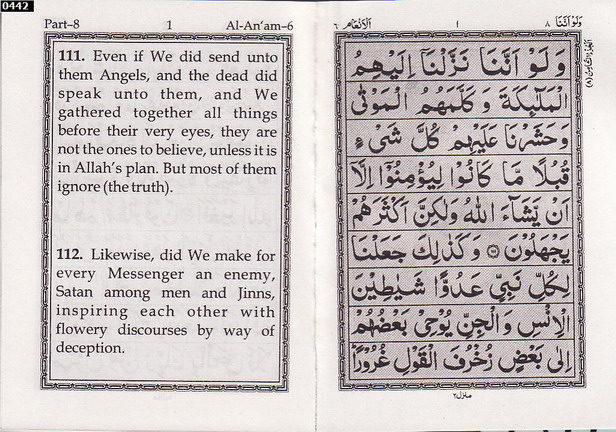 0442
Part–8 1 Al-An'am–6
111. Even if We did send unto
them Angels, and the dead did
speak unto them, and We
gathered together all things
before their very eyes, they are
not the ones to believe, unless it is
in Allah's plan. But most of them
ignore (the truth).
112. Likewise, did We make for
every Messenger an enemy,
Satan among men and Jinns,
inspiring each other with
flowery discourses by way of
deception.
ولو اننا ٨ ١ الانعام ٦
وَ لَوْ اَنَّنَا نَزَّلْنَاۤ اِلَيْهِمُ
الْمَلٰٓئِكَةَ وَ كَلَّمَهُمُ الْمَوْتٰى
وَحَشَرْنَا عَلَيْهِمْ كُلَّ شَىْءٍ
قُبُلًا مَّا كَانُوْا لِيُؤْمِنُوْۤا اِلَّاۤ
اَنْ يَّشَآءَ اللّٰهُ وَلٰكِنَّ اَكْثَرَهُمْ
يَجْهَلُوْنَ ۝ وَ كَذٰلِكَ جَعَلْنَا
لِكُلِّ نَبِيٍّ عَدُوًّا شَيٰطِيْنَ
الْاِنْسِ وَ الْجِنِّ يُوْحِيْ بَعْضُهُمْ
اِلٰى بَعْضٍ زُخْرُفَ الْقَوْلِ غُرُوْرًا
منزل ٢